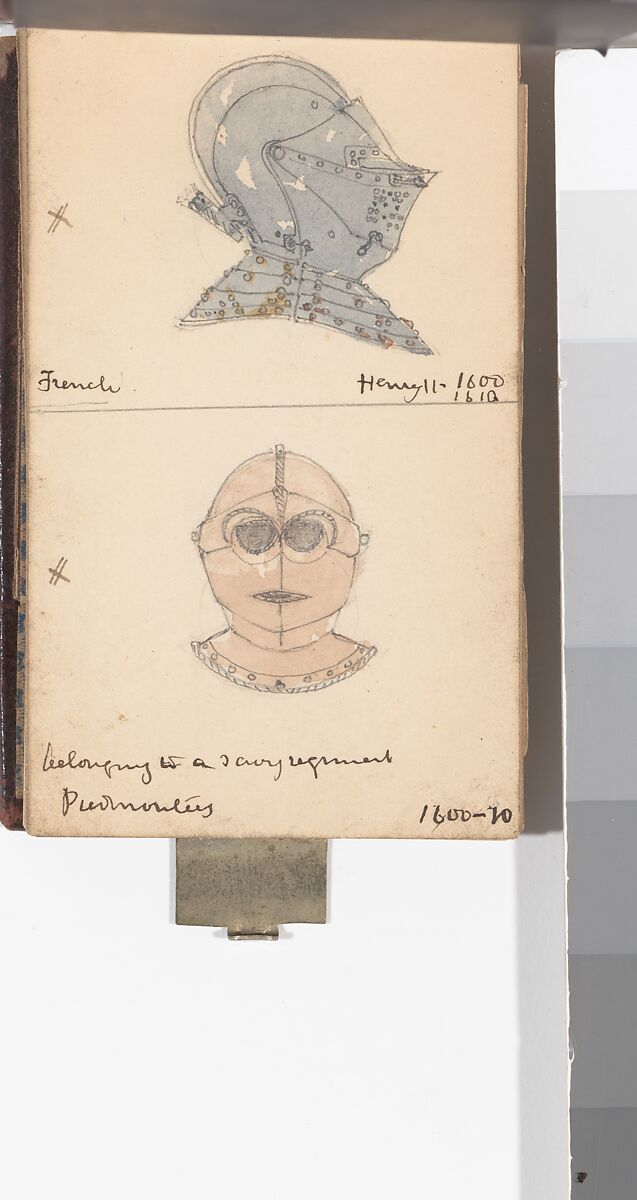 French
Henry II - 1600
1610
belonging to a Savoy regiment
Piedmontees
1600-10